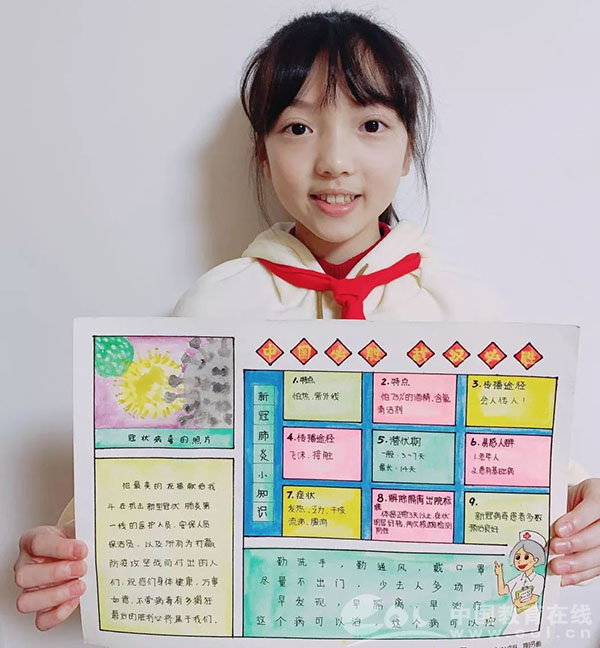 中国必胜 武汉必胜
冠状病毒的照片
把最美的祝福献给战
斗在抗击新型冠状肺炎第
一线的医护人员、安保人员
保洁员、以及所有为打赢
防疫攻坚战而付出的人
们,祝他们身体健康,万事
如意,不管病毒有多猖狂
最后的胜利必将属于我们。
新冠肺炎小知识
1.特点
怕热、紫外线
2.特点
怕75%的酒精,含氯
消毒剂
3.传播途径
会人传人!
4.传播途径
飞沫,接触
5.潜伏期
一般:3-7天
最长:14天
6.易感人群
1.老年人
2.患有基础病
7.症状
发热、乏力、干咳
流涕、腹泻
8.解除隔离出院标
准
9.
新冠病毒患者多数
预后良好
勤洗手,勤通风,戴口罩
尽量不出门,少去人多场所
早发现,早隔离,早治疗
这个病可以治,这个病可以控
中国教育在线
eol.cn